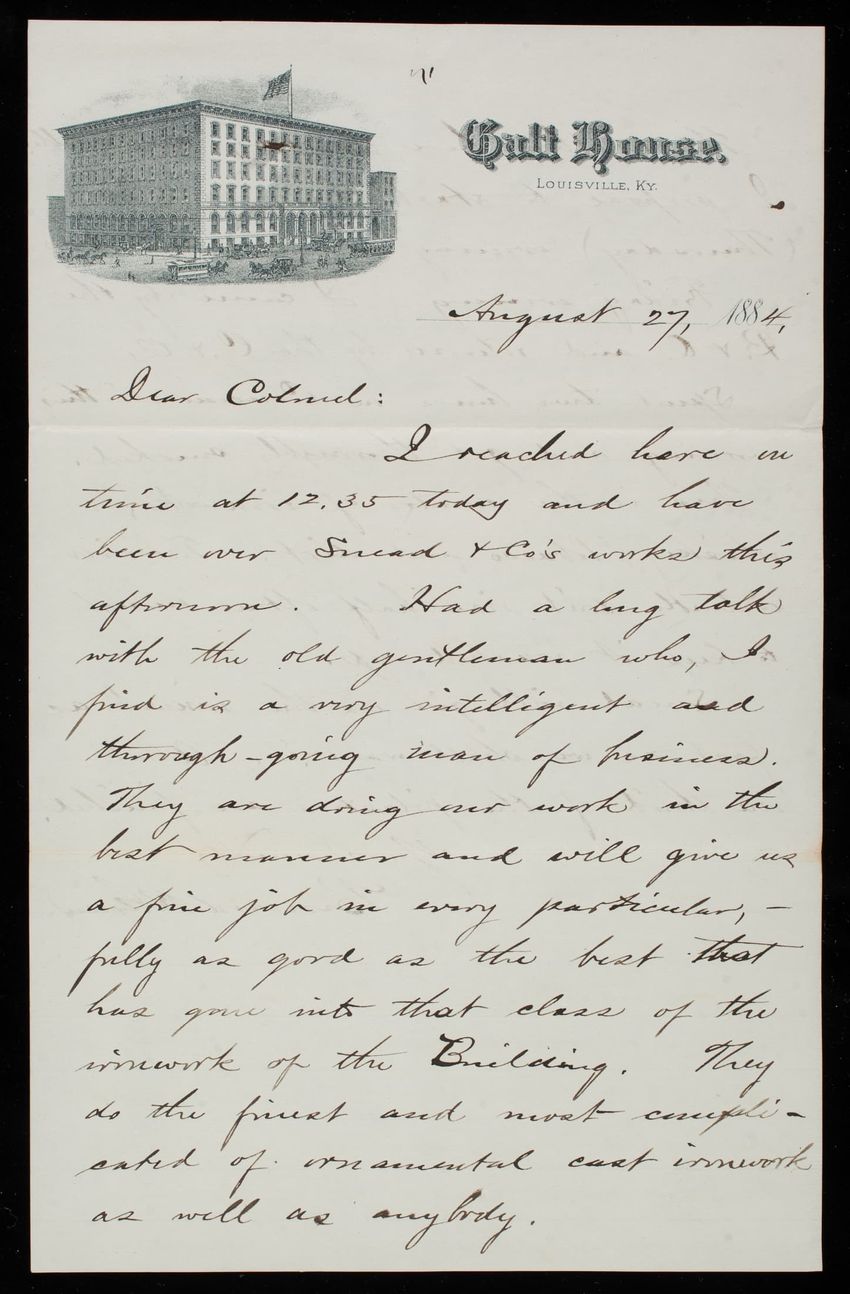 Galt House.
Louisville, Ky.
August 27, 1884,
Dear Colonel:
I reached here on
time at 12.35 today and have
been over Snead & Co's works this
afternoon. Had a long talk
with the old gentleman who, I
find is a very intelligent and
through-going man of business.
They are doing our work in the
best manner and will give us
a fine job in every particular, –
fully as good as the best that
has gone into that class of the
ironwork of the Building. They
do the finest and most compli-
cated of ornamental cast ironwork
as well as anybody.